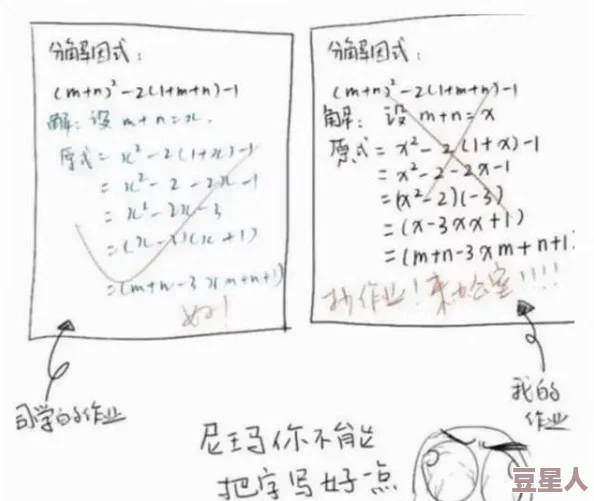 分解因式:
(m+n)²-2(1+m+n)-1
解:设m+n=x.
原式=x²-2(1+x)-1
=x²-2-2x-1
=x²-2x-3
=(x-3)(x+1)
=(m+n-3)(m+n+1)
好!
同学的作业
分解因式:
(m+n)²-2(1+m+n)-1
解:设m+n=x
原式=x²-2(1+x)-1
=x²-2-2x-1
=(x²-2)(-3)
=(x-3xx+1)
=(m+n-3xm+n+1)
抄作业!来办公室!!!!
我的
作业
尼玛你不能
把字写好一点
豆星人